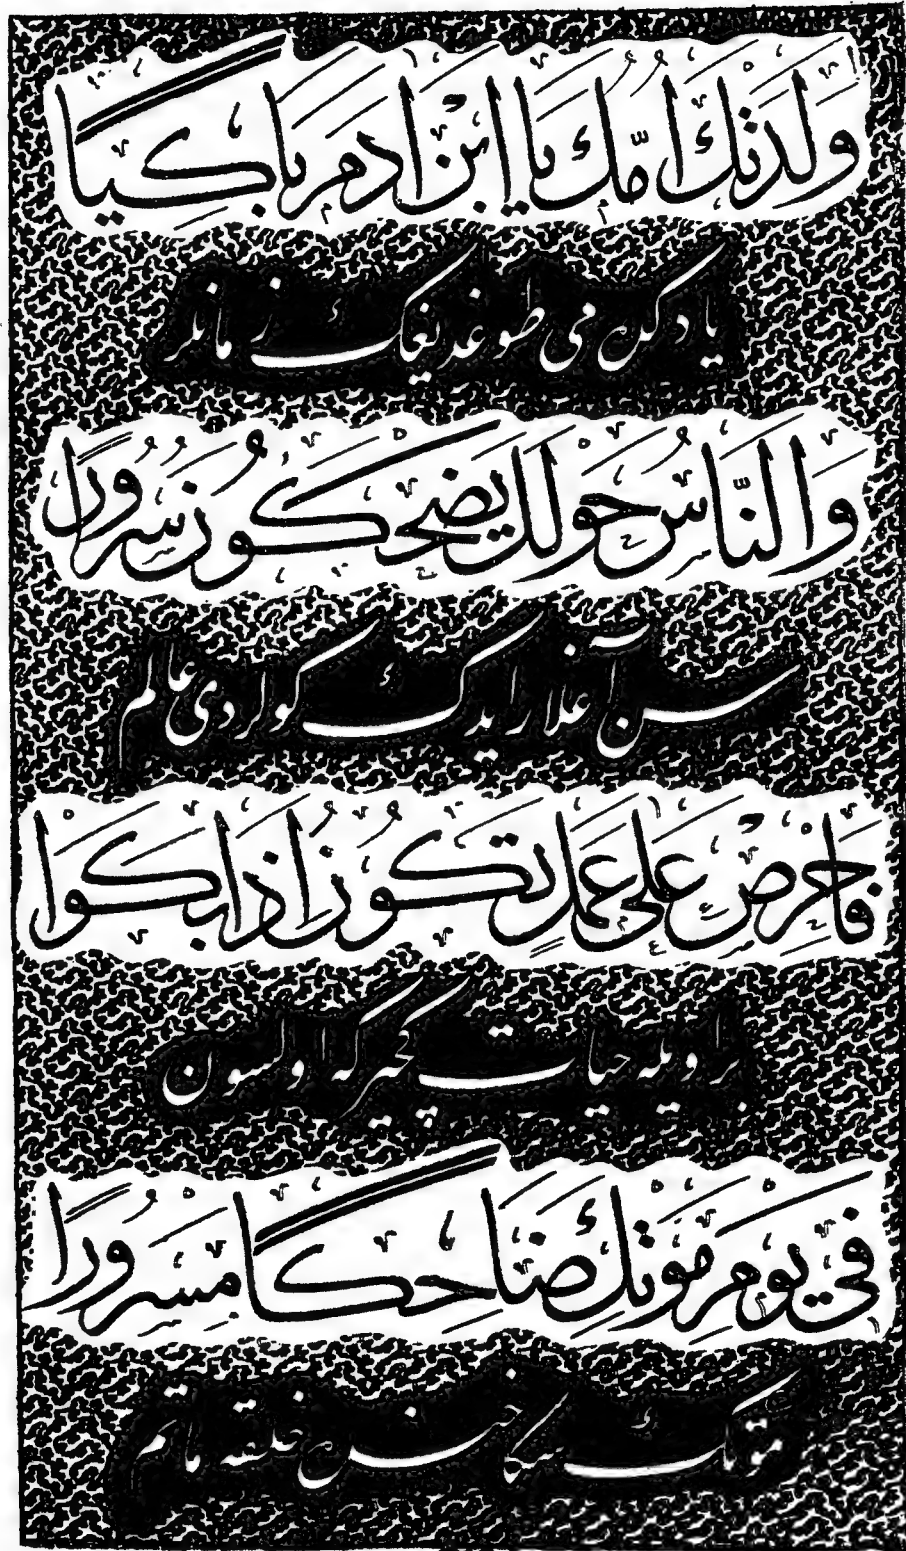 وَلَدَتْكَ اُمُّكَ يَا ابْنَ اٰدَمَ بَاكِيًا
ياد كن مى طوغديغك زمانلر
وَالنَّاسُ حَوْلَكَ يَضْحَكُونَ سُرُورًا
سن آغلار ايدك كولردى عالم
فَاحْرِصْ عَلٰى عَمَلٍ تَكُونُ اِذَا بَكَوْا
بر اويله حيات كچير كه اولسون
فِى يَوْمِ مَوْتِكَ ضَاحِكًا مَسْرُورًا
موتك سكا خنده خلقه ماتم